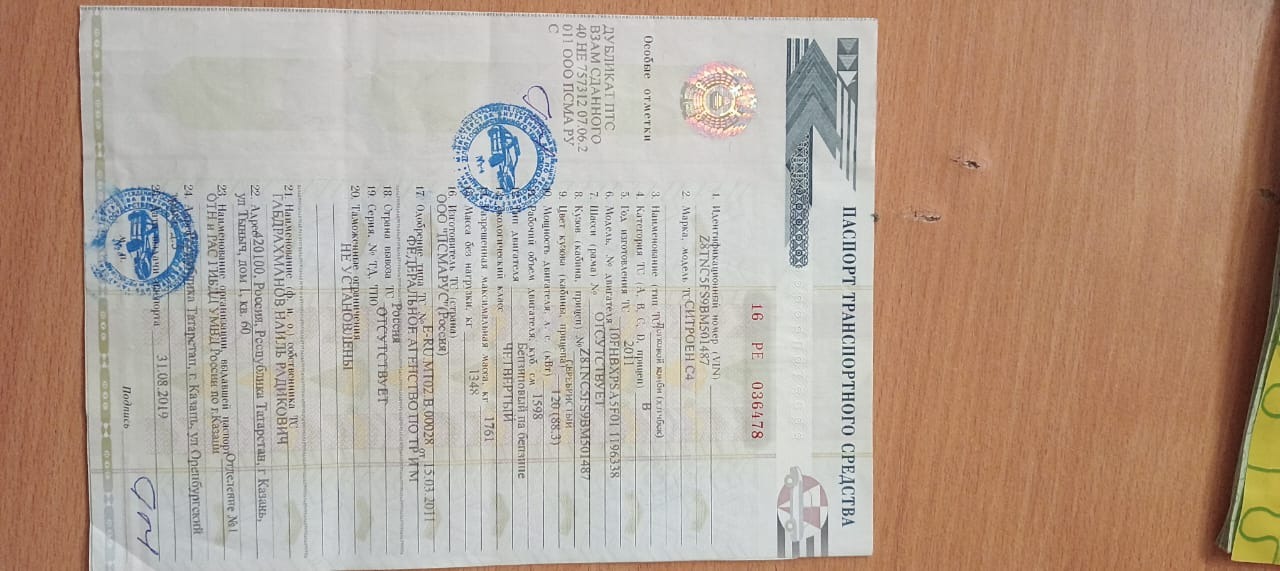 ПАСПОРТ ТРАНСПОРТНОГО СРЕДСТВА
16 РЕ 036478
1. Идентификационный номер (VIN)
Z8TNC5FS9BM501487
2. Марка, модель ТС СИТРОЕН С4
3. Наименование (тип ТС) Легковой комби (хэтчбэк)
4. Категория ТС (А, В, С, D, прицеп) В
5. Год изготовления ТС 2011
6. Модель, № двигателя 10FHBXPSA5F01 1196338
7. Шасси (рама) № ОТСУТСТВУЕТ
8. Кузов (кабина, прицеп) № Z8TNC5FS9BM501487
9. Цвет кузова (кабины, прицепа) СЕРЕБРИСТЫЙ
10. Мощность двигателя, л. с. (кВт) 120 (88.3)
Рабочий объем двигателя, куб. см 1598
Тип двигателя Бензиновый на бензине
Экологический класс ЧЕТВЕРТЫЙ
Разрешенная максимальная масса, кг 1761
Масса без нагрузки, кг 1348
16. Изготовитель ТС (страна)
ООО "ПСМАРУС" (Россия)
17. Одобрение типа ТС № E-RU.MT02.B.00028 от 15.03.2011
ФЕДЕРАЛЬНОЕ АГЕНТСТВО ПО ТР И М
18. Страна вывоза ТС Россия
19. Серия, № ТД, ТПО ОТСУТСТВУЕТ
20. Таможенные ограничения
НЕ УСТАНОВЛЕНЫ
21. Наименование (ф. и. о.) собственника ТС
ГАБДРАХМАНОВ НАИЛЬ РАДИКОВИЧ
22. Адрес 420100, Россия, Республика Татарстан, г. Казань,
ул Тыныч, дом 1, кв. 60
23. Наименование организации, выдавшей паспорт Отделение №1
ОТН и РАС ГИБДД УМВД России по г.Казани
24. Татарстан, г. Казань, ул. Оренбургский
паспорта 31.08.2019
Подпись
Особые отметки
ДУБЛИКАТ ПТС
ВЗАМ СДАННОГО
40 НЕ 757312 07.06.2
011 ООО ПСМА РУ
С